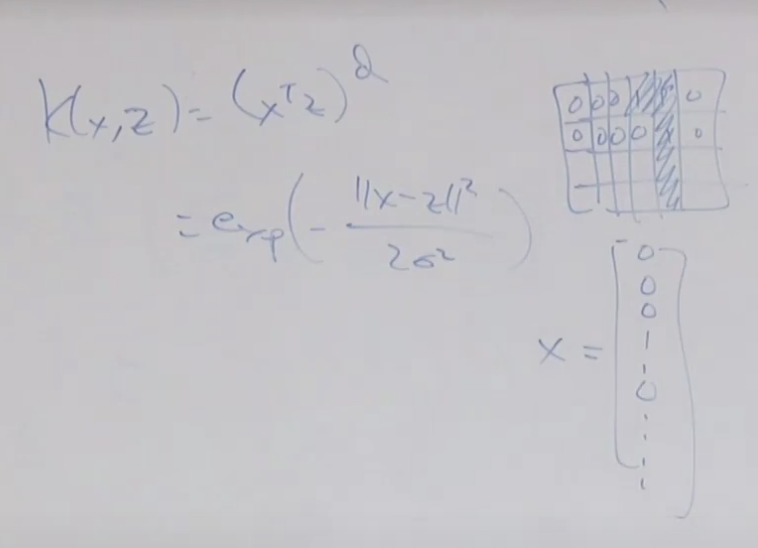 K(x,z) = (x^T z)^d
= exp(- ||x-z||² / 2σ²)
0 0 0 0
0 0 0 0 0
x = [ 0
0
0
1
1
0
⋮
1
1 ]